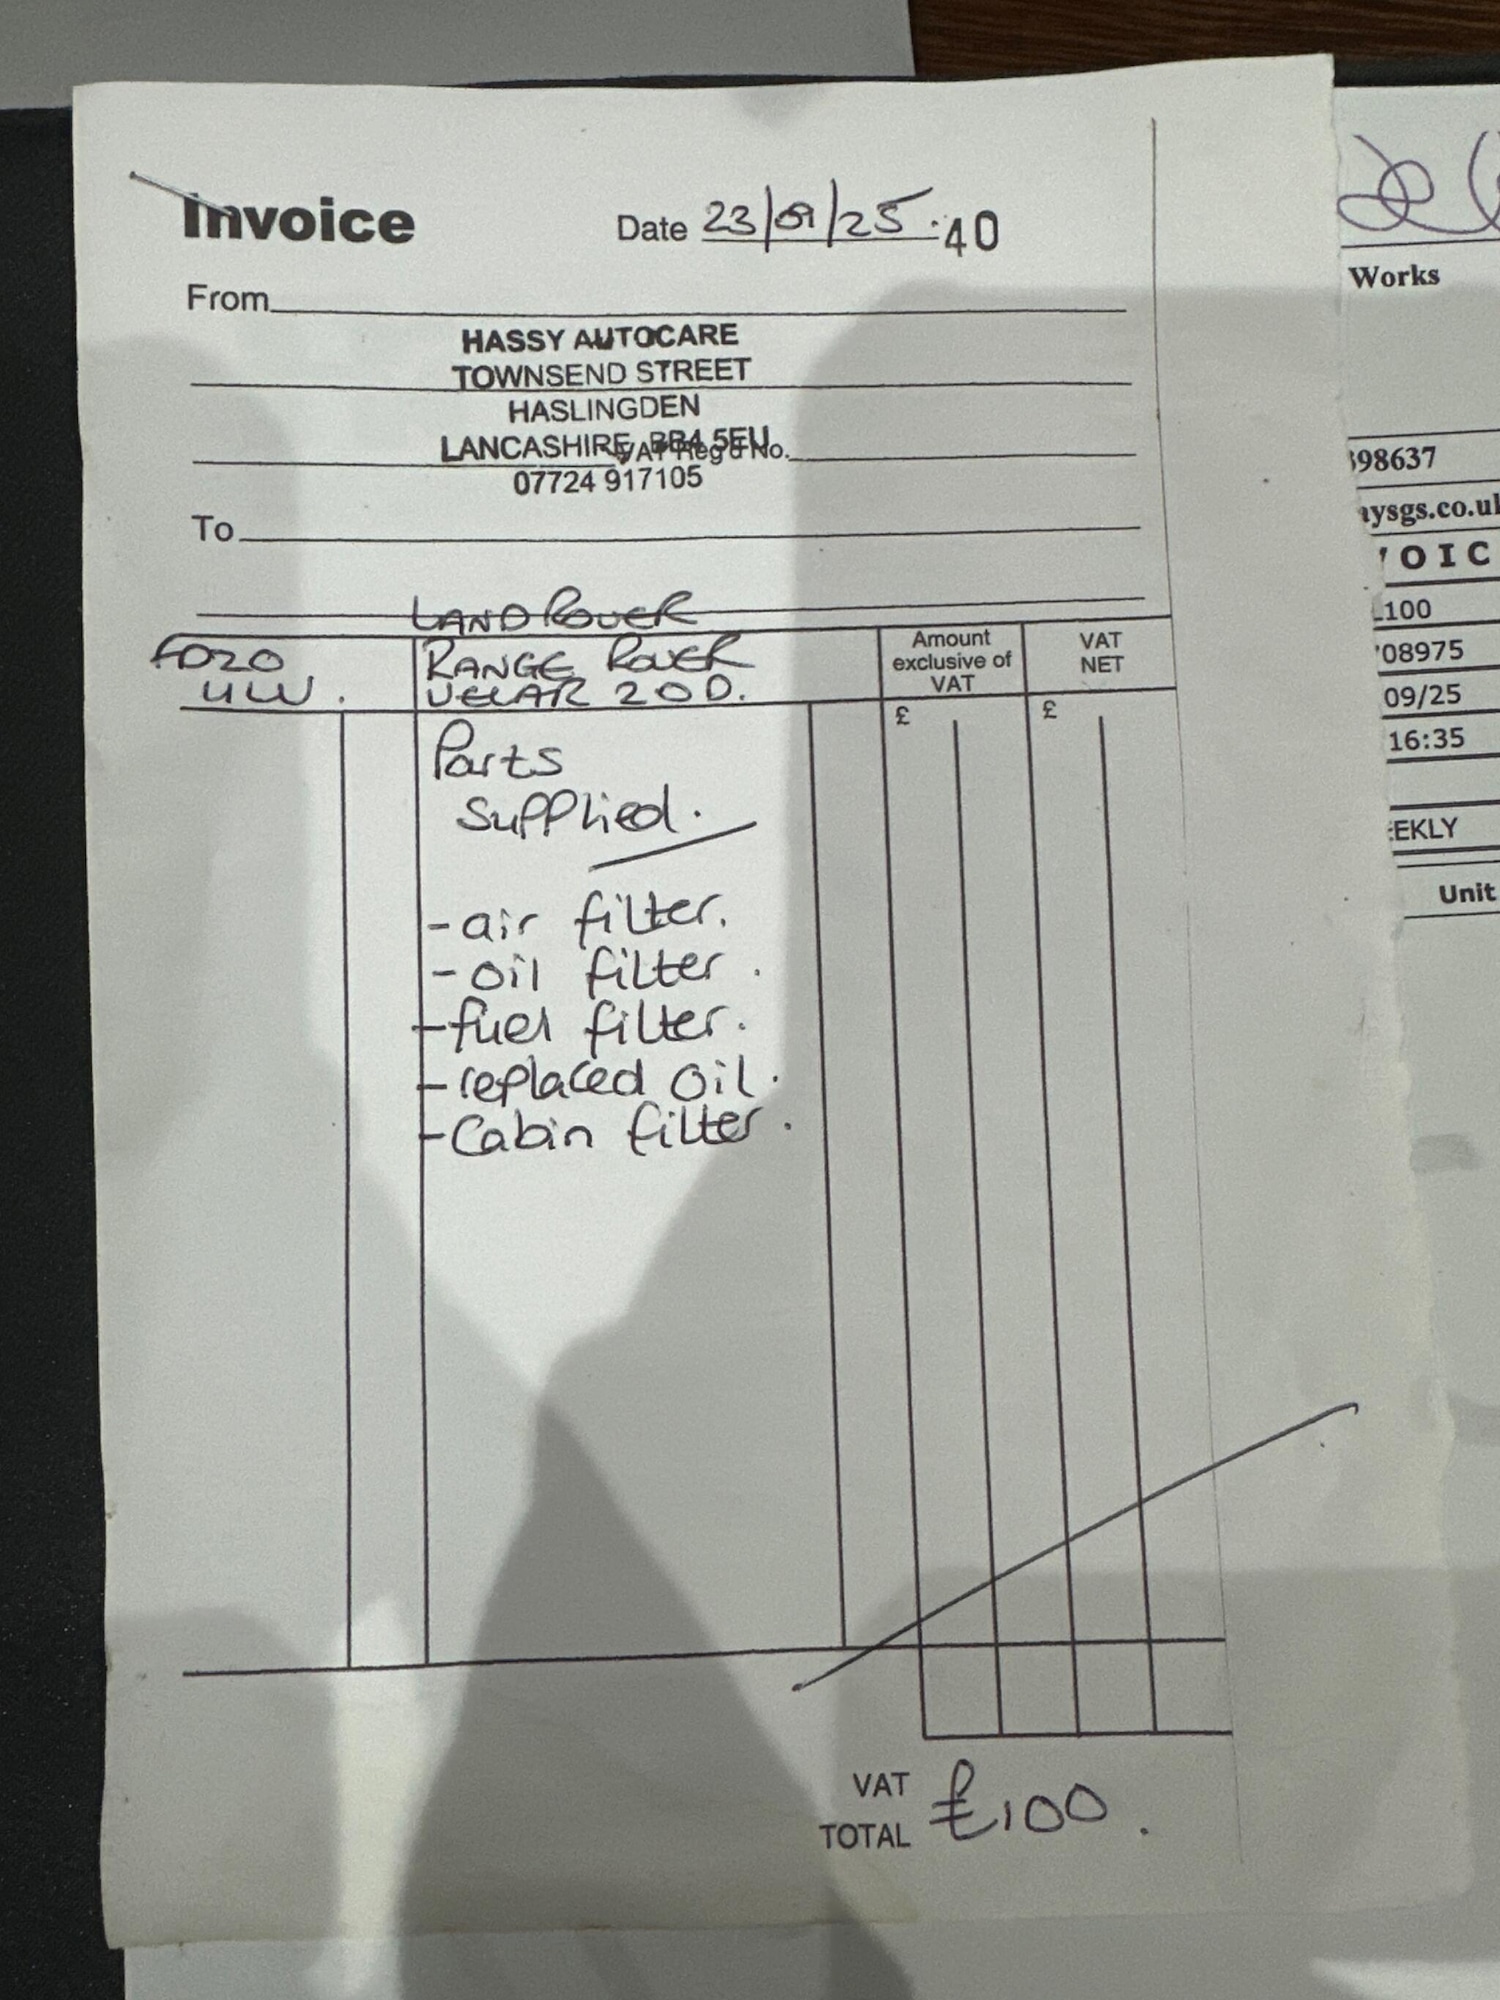 Invoice
Date 23/09/25 .40
From
HASSY AUTOCARE
TOWNSEND STREET
HASLINGDEN
LANCASHIRE, BB4 5EU
VAT Reg'd No.
07724 917105
To
LAND ROVER
FD20
RANGE ROVER
VELAR 20D.
Amount
exclusive of
VAT
VAT
NET
£
£
Parts
Supplied.
- air filter.
- oil filter.
- fuel filter.
- replaced oil.
- Cabin filter.
VAT
TOTAL
£100.
Works
98637
aysgs.co.uk
VOIC
100
08975
09/25
16:35
EEKLY
Unit